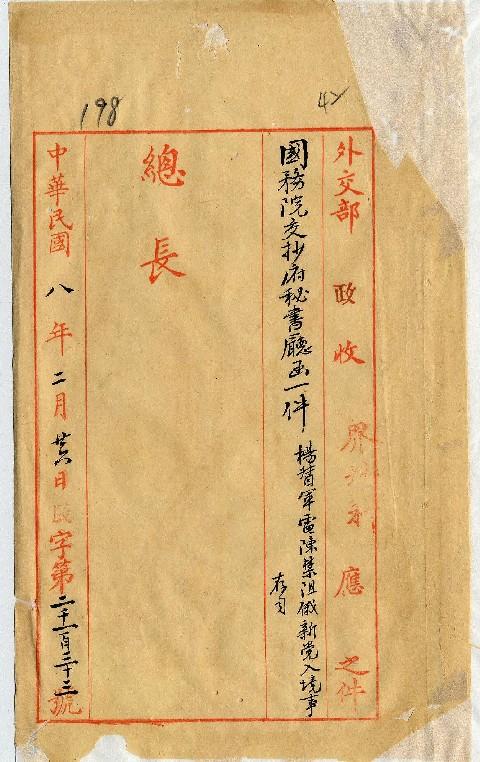 198
42
外交部 政 收 應 之件
國務院交抄府秘書廳函一件
楊督軍電陳禁阻俄新党入境事
存司
總長
中華民國八年二月廿六日 字第二千一百二十三號